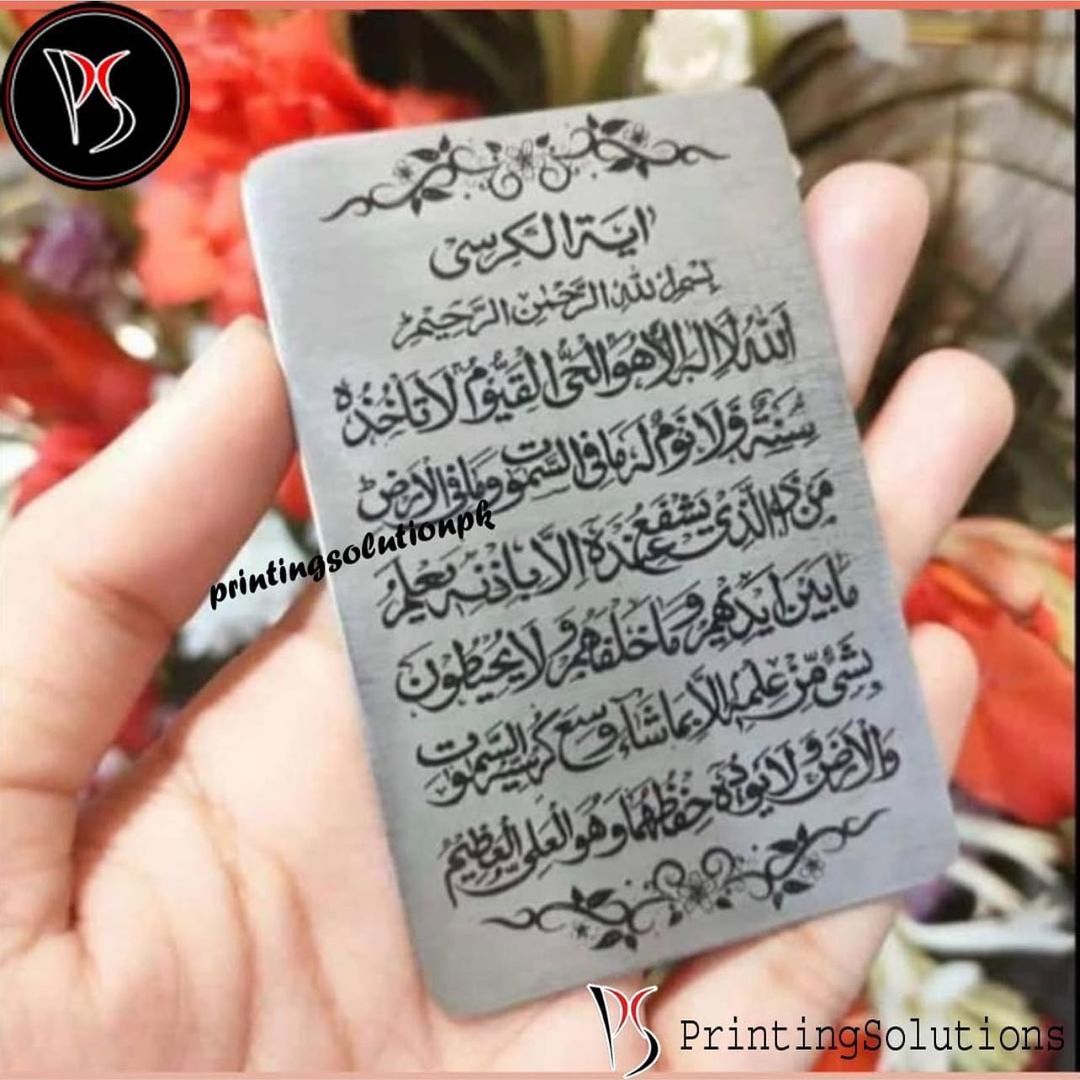 PS
اٰیة الکرسی
بسم اللہ الرحمٰن الرحیم
اللہ لا الہ الا هو الحی القیوم لا تاخذہ
سنة ولا نوم لہ ما فی السمٰوت وما فی الارض
من ذا الذی یشفع عندہ الا باذنہ یعلم
ما بین ایدیهم وما خلفهم ولا یحیطون
بشیء من علمہ الا بما شاء وسع کرسیہ السمٰوت
والارض ولا یودہ حفظهما وهو العلی العظیم
printingsolutionpk
PS PrintingSolutions